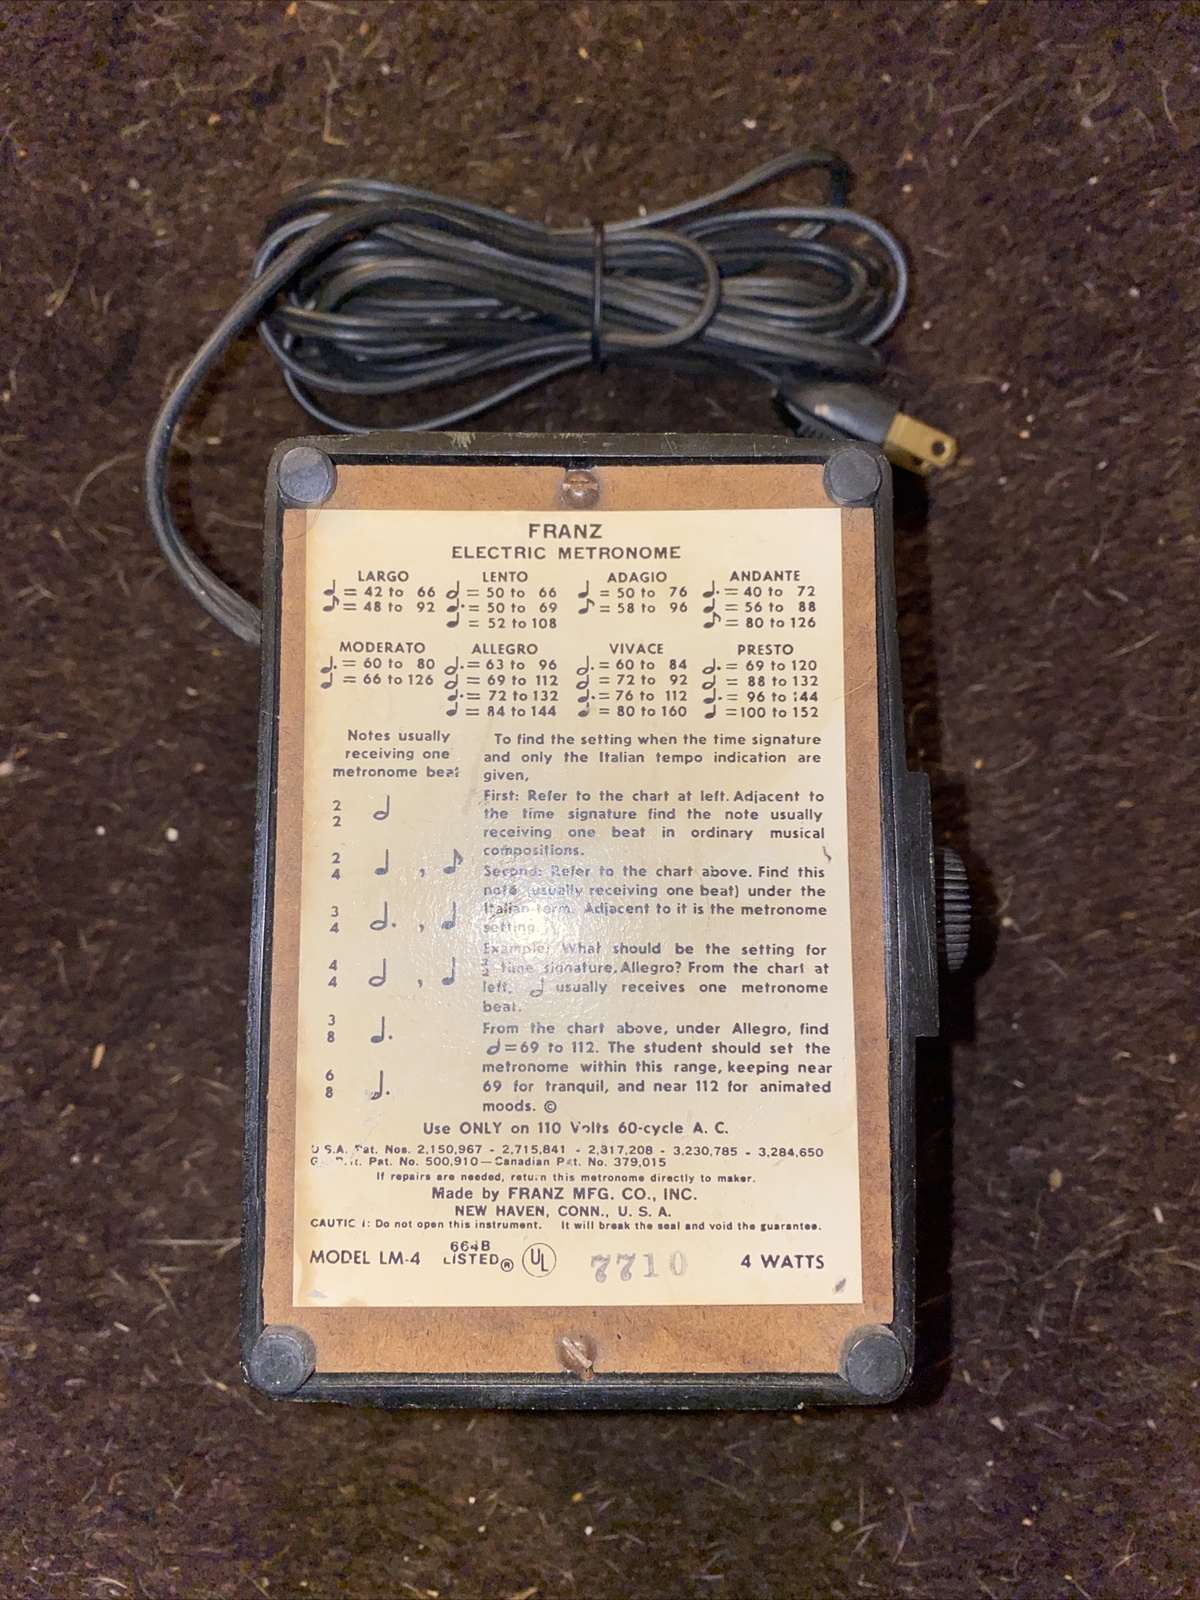 FRANZ
ELECTRIC METRONOME
LARGO LENTO ADAGIO ANDANTE
𝅘𝅥 = 42 to 66 𝅗𝅥 = 50 to 66 𝅘𝅥 = 50 to 76 𝅘𝅥. = 40 to 72
♪ = 48 to 92 𝅘𝅥. = 50 to 69 ♪ = 58 to 96 𝅘𝅥 = 56 to 88
𝅘𝅥 = 52 to 108 ♪ = 80 to 126
MODERATO ALLEGRO VIVACE PRESTO
𝅘𝅥. = 60 to 80 𝅗𝅥. = 63 to 96 𝅗𝅥. = 60 to 84 𝅗𝅥. = 69 to 120
𝅘𝅥 = 66 to 126 𝅗𝅥 = 69 to 112 𝅗𝅥 = 72 to 92 𝅗𝅥 = 88 to 132
𝅘𝅥. = 72 to 132 𝅘𝅥. = 76 to 112 𝅘𝅥. = 96 to 144
𝅘𝅥 = 84 to 144 𝅘𝅥 = 80 to 160 𝅘𝅥 = 100 to 152
Notes usually
receiving one
metronome beat
2/2 𝅗𝅥
2/4 𝅘𝅥 , ♪
3/4 𝅗𝅥. , 𝅘𝅥
4/4 𝅗𝅥 , 𝅘𝅥
3/8 𝅘𝅥.
6/8 𝅘𝅥.
To find the setting when the time signature
and only the Italian tempo indication are
given,
First: Refer to the chart at left. Adjacent to
the time signature find the note usually
receiving one beat in ordinary musical
compositions.
Second: Refer to the chart above. Find this
note (usually receiving one beat) under the
Italian term. Adjacent to it is the metronome
setting.
Example: What should be the setting for
2/2 time signature, Allegro? From the chart at
left, 𝅗𝅥 usually receives one metronome
beat.
From the chart above, under Allegro, find
𝅗𝅥 = 69 to 112. The student should set the
metronome within this range, keeping near
69 for tranquil, and near 112 for animated
moods. ©
Use ONLY on 110 Volts 60-cycle A. C.
U.S.A. Pat. Nos. 2,150,967 - 2,715,841 - 2,817,208 - 3,230,785 - 3,284,650
Pat. No. 500,910—Canadian Pat. No. 379,015
If repairs are needed, return this metronome directly to maker.
Made by FRANZ MFG. CO., INC.
NEW HAVEN, CONN., U. S. A.
CAUTION: Do not open this instrument. It will break the seal and void the guarantee.
MODEL LM-4 664B LISTED® UL 7710 4 WATTS